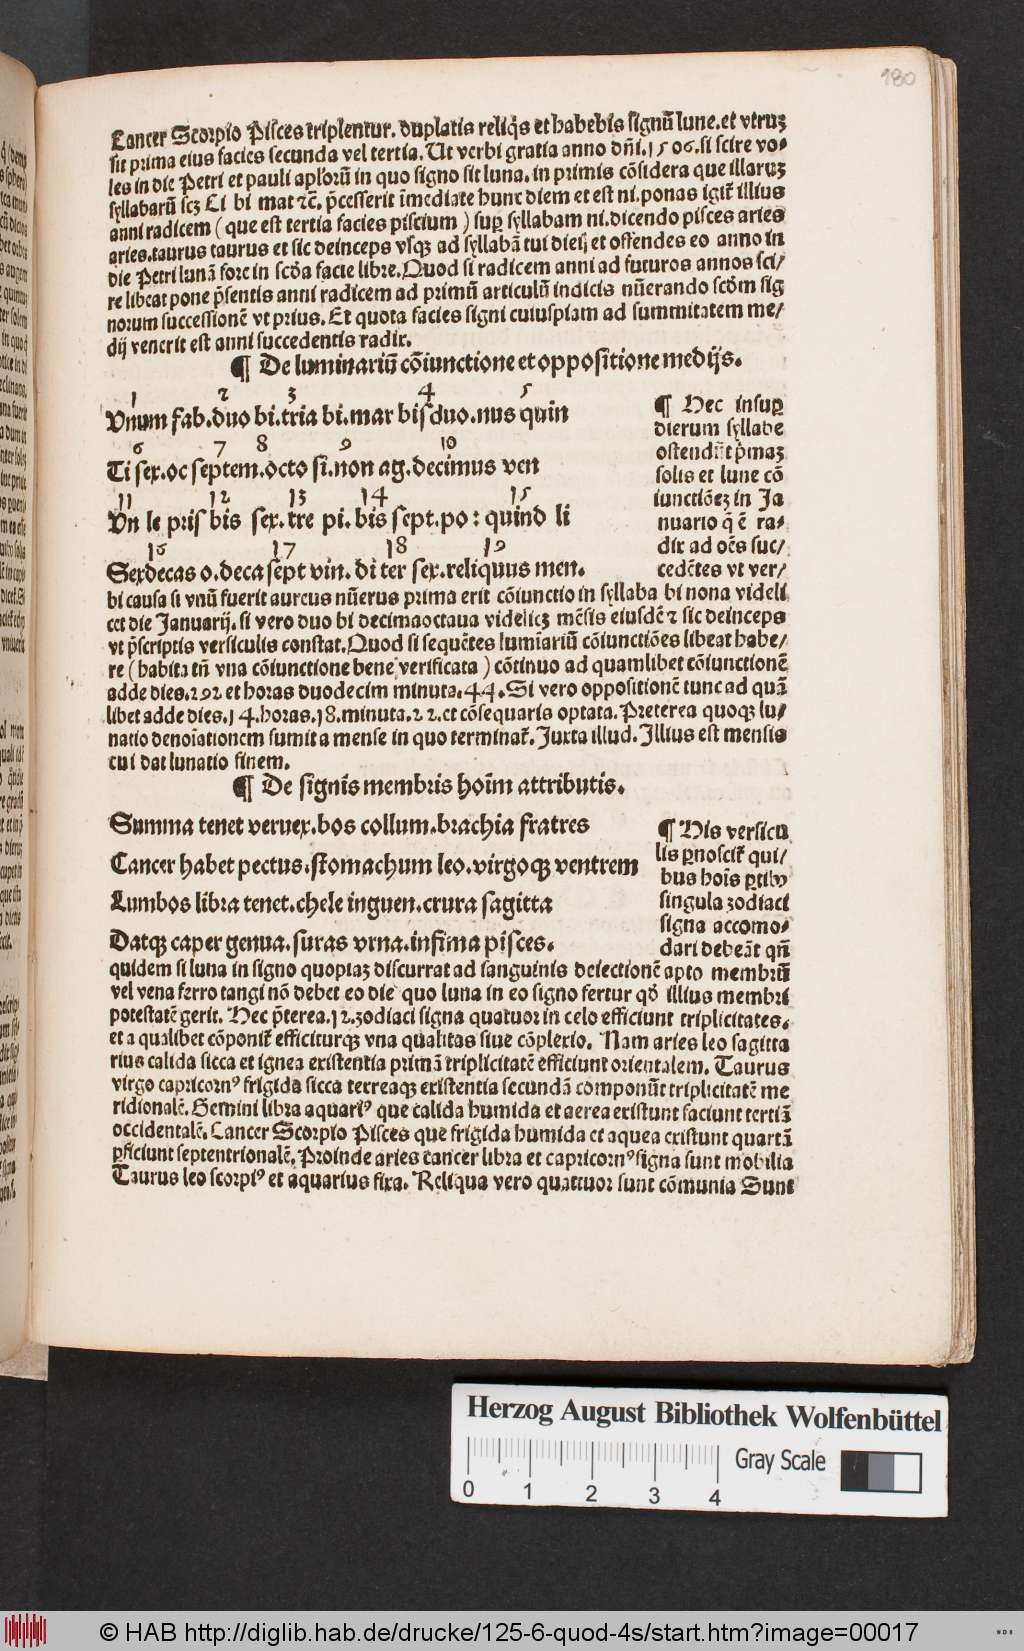 180
Cancer Scorpio Pisces triplentur. duplatis reliq̄s et habebis signū lune. et vtruꝫ
sit prima eius facies secunda vel tertia. Ut verbi gratia anno dn̄i. 1506. si scire vo⸗
les in die Petri et pauli apl'orū in quo signo sit luna. in primis cōsidera que illaruꝫ
syllabarū scꝫ Ci bi mat ⁊c̄. p̄cesserit īmediate hunc diem et est ni. ponas igit̄ illius
anni radicem (que est tertia facies piscium) suꝑ syllabam ni. dicendo pisces aries
aries. taurus taurus et sic deinceps vsqꝫ ad syllabā tui diei et offendes eo anno in
die Petri lunā fore in scd̄a facie libre. Quod si radicem anni ad futuros annos sci/
re libeat pone p̄sentis anni radicem ad primū articulū indicis nūerando scd̄m sig
norum successionē vt prius. Et quota facies signi cuiuspiam ad summitatem me/
dij venerit est anni succedentis radix.
¶ De luminariū cōiunctione et oppositione medijs.
1 2 3 4 5
Vnum fab. duo bi. tria bi. mar bis duo. nus quin
6 7 8 9 10
Ti sex. oc septem. octo si. non ag. decimus ven
11 12 13 14 15
Vn le pris bis sex. tre pi. bis sept. po: quind li
16 17 18 19
Sexdecas o. deca sept vin. di ter sex. reliquus men.
¶ Hec insuꝑ
dierum syllabe
ostendūt p̄maꝫ
solis et lune cō
iunctiōeꝫ in Ja
nuario q̄ ē ra⸗
dix ad oēs suc/
cedētes vt ver/
bi causa si vnū fuerit aureus nūerus prima erit cōiunctio in syllaba bi nona videli
cet die Januarij. si vero duo bi decimaoctaua videlicꝫ mēsis eiusdē ⁊ sic deinceps
vt p̄scriptis versiculis constat. Quod si sequētes lumīariū cōiunctiōes libeat habe/
re (habita tn̄ vna cōiunctione bene verificata) cōtinuo ad quamlibet cōiunctionē
adde dies. 292 et horas duodecim minuta. 44. Si vero oppositionē tunc ad quā
libet adde dies. 14. horas. 18. minuta. 22. et cōsequaris optata. Preterea quoqꝫ lu⸗
natio denoīationem sumit a mense in quo terminat̄. Juxta illud. Illius est mensis
cui dat lunatio finem.
¶ De signīs membris hoīm attributis.
Summa tenet veruex. bos collum. brachia fratres
Cancer habet pectus. stomachum leo. virgoqꝫ ventrem
Lumbos libra tenet. chele inguen. crura sagitta
Datqꝫ caper genua. suras vrna. infima pisces.
¶ His versicu
lis ꝑnoscit̄ qui/
bus hoīs ꝑtibꝰ
singula zodiaci
signa accomo⸗
dari debeāt qn̄
quidem si luna in signo quopiaꝫ discurrat ad sanguinis deiectionē apto membrū
vel vena ferro tangi nō debet eo die quo luna in eo signo fertur qd̄ illius membri
potestatē gerit. Hec p̄terea. 12. zodiaci signa quatuor in celo efficiunt triplicitates.
et a qualibet cōponit̄ efficiturqꝫ vna qualitas siue cōplexio. Nam aries leo sagitta
rius calida sicca et ignea existentia primā triplicitatē efficiunt orientalem. Taurus
virgo capricornꝰ frigida sicca terreaqꝫ existentia secundā componūt triplicitatē me
ridionalē. Gemini libra aquariꝰ que calida humida et aerea existunt faciunt tertiā
occidentalē. Cancer Scorpio Pisces que frigida humida et aquea existunt quartā
ꝑficiunt septentrionalē. Proinde aries cancer libra et capricornꝰ signa sunt mobilia
Taurus leo scorpiꝰ et aquarius fixa. Reliqua vero quattuor sunt cōmunia Sunt
Herzog August Bibliothek Wolfenbüttel
Gray Scale
0 1 2 3 4
© HAB http://diglib.hab.de/drucke/125-6-quod-4s/start.htm?image=00017